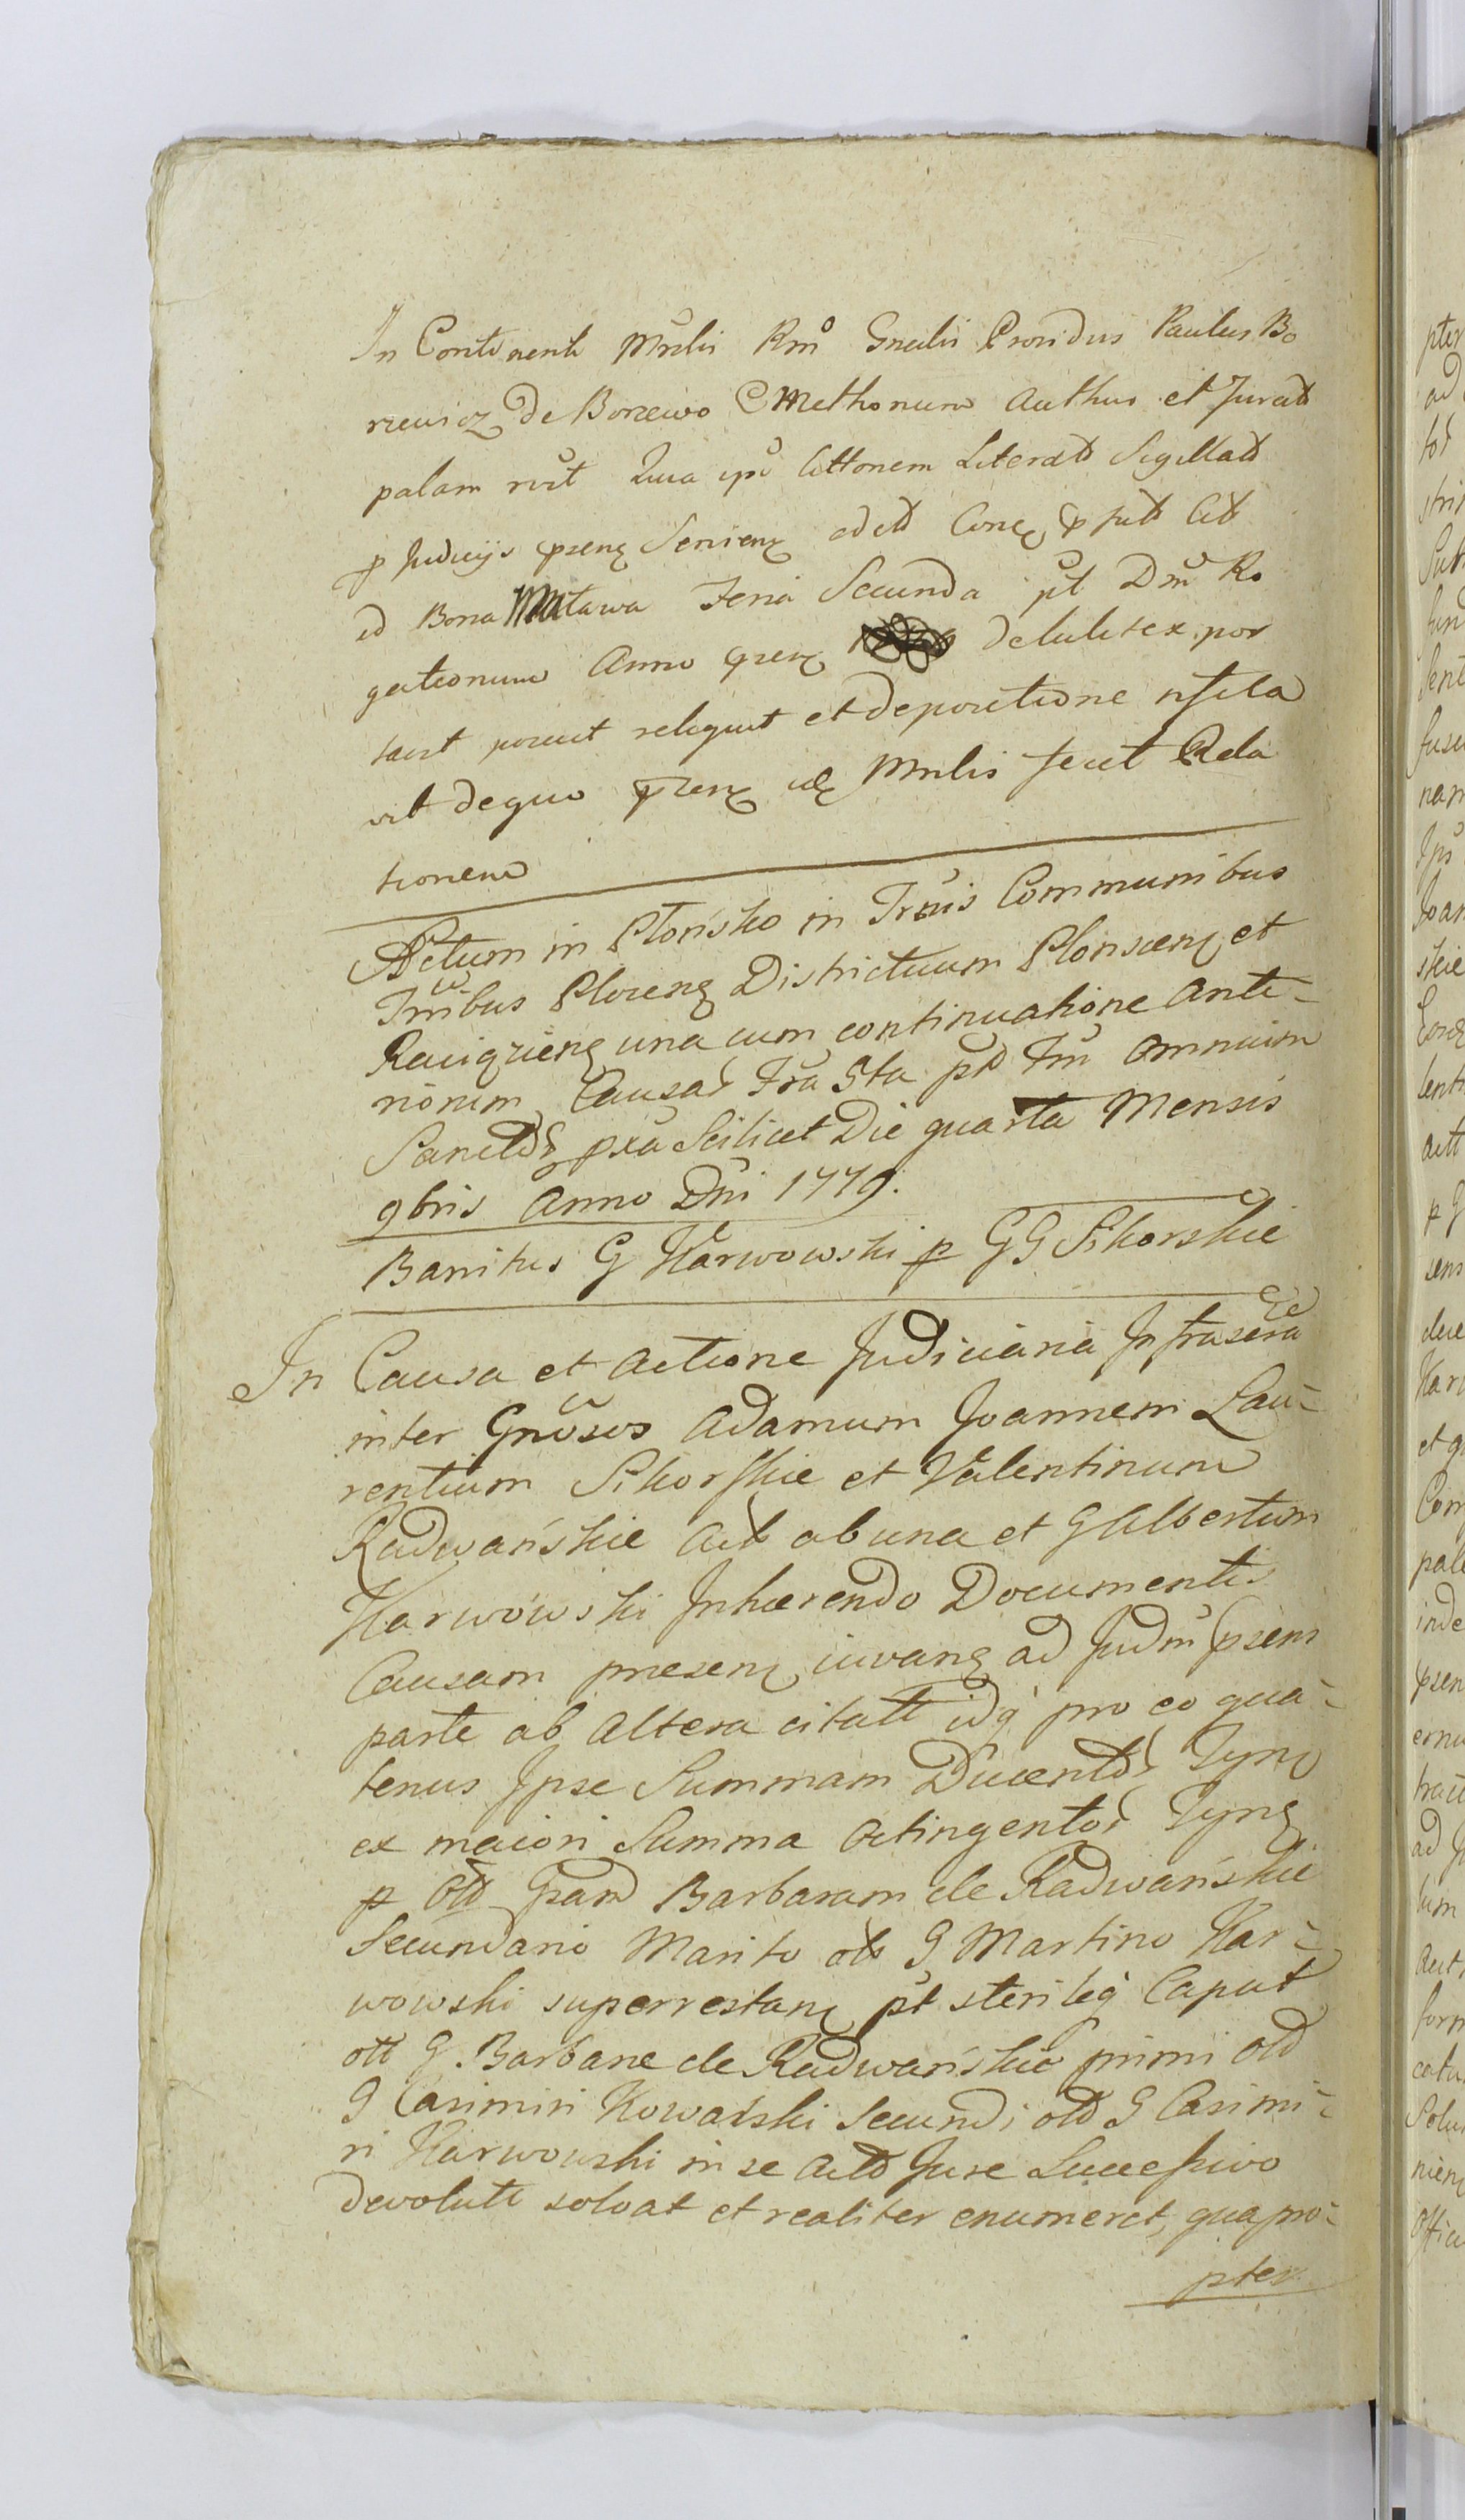 In Continenti Mnrlis Rmo Gnrlis Providus Paulus Bo
rzewicz de Borzewo CMethonum Authus et Jurat
palam rvit Quia ipse Cittonem Literat Sigillat
p Judicijs prsenz Servienz edit Conz
ad Bona Mlawa Feria Secunda pt Dm Ro
gationum Anno prsenz
posuit reliquit et depositione
vit dequo prsenz idz Mnrlis fecit Rela
tionem
Actum in Płońsko in Trnis Communibus
Trnibus Plocenz Districtuum Plonscenz et
Raciązienz una cum continuatione Ante-
riorum Causar Fra 5ta pt Fm Omnium
Sanctor pxa Scilicet Die quarta Mensis
9bris Anno Dni 1779.
Banitus G Karwowski p GG Sikorskie
In Causa et Actione Judiciaria Infrascra
inter Gnosos Adamum Joannem Lau-
rentium Sikorskie et Valentinum
Radwańskie Act ab una et G Albertum
Karwowski Inhærendo Documentis
Causam præsenz iuvanz ad Judm prsens
parte ab Altera citatt idq pro eo qua-
tenus Ipse Summam Ducentor Tynz
ex maiori Summa Octingentor Tynz
p Olt Gsam Barbaram de Radwańskie
Secundario Marito olt G Martino Kar-
wowski superrestanz pt steril eq Caput
olt G. Barbaræ de Radwańskie primi olt
G Casimiri Kowalski Secundi olt G Casimi-
ri Karwowski in se Act Jure Successivo
devolutt solvat et realiter enumeret, quapro-
pter